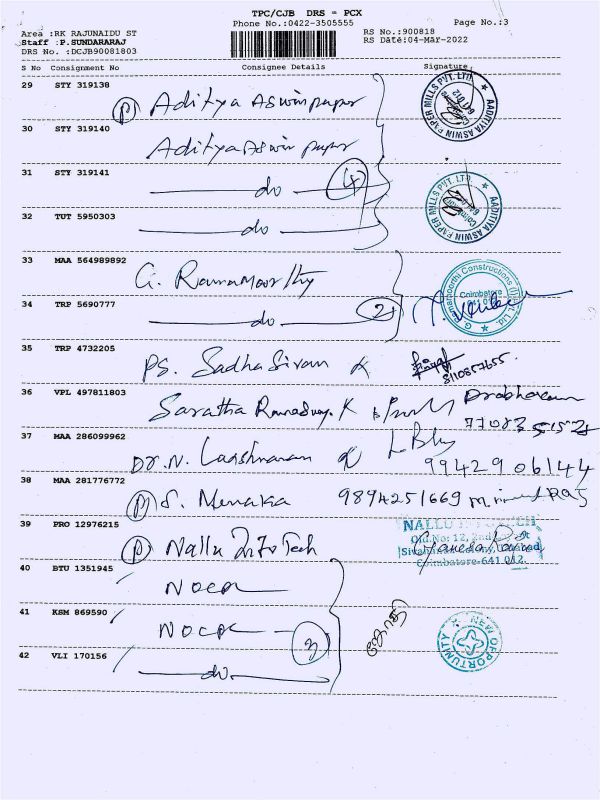 TPC/CJB DRS = PCX
Phone No.:0422-3505555 Page No.:3
Area :RK RAJUNAIDU ST RS No.:900818
Staff :P.SUNDARARAJ RS Date:04-Mar-2022
DRS No. :DCJB90081803
S No Consignment No Consignee Details Signature
29 STY 319138
(P) Aditya Aswin paper
30 STY 319140
Aditya Aswin paper
31 STY 319141
do (4)
32 TUT 5950303
do
AADITYA ASWIN PAPER MILLS PVT. LTD.
Coimbatore 641 012
AADITYA ASWIN PAPER MILLS PVT. LTD.
33 MAA 564989892
G. Ramamoorthy
34 TRP 5690777
do (2)
G. Ramamoorthi Constructions (I) Pvt. Ltd.
Coimbatore
35 TRP 4732205
PS. Sadha Sivam
8110857655.
36 VPL 497811803
Saratha K Prabhakaran
37 MAA 286099962
Dr. N. Lakshmanan
99429 06144
38 MAA 281776772
(P) S. Menaka 9894251669
39 PRO 12976215
(P) Nallu Info Tech
NALLU INFO TECH
Old.No: 12, 2nd
Coimbatore-641 012.
40 BTU 1351945
NOCR
41 KSM 869590
NOCR (3)
42 VLI 170156
do
NEW OPPORTUNITY